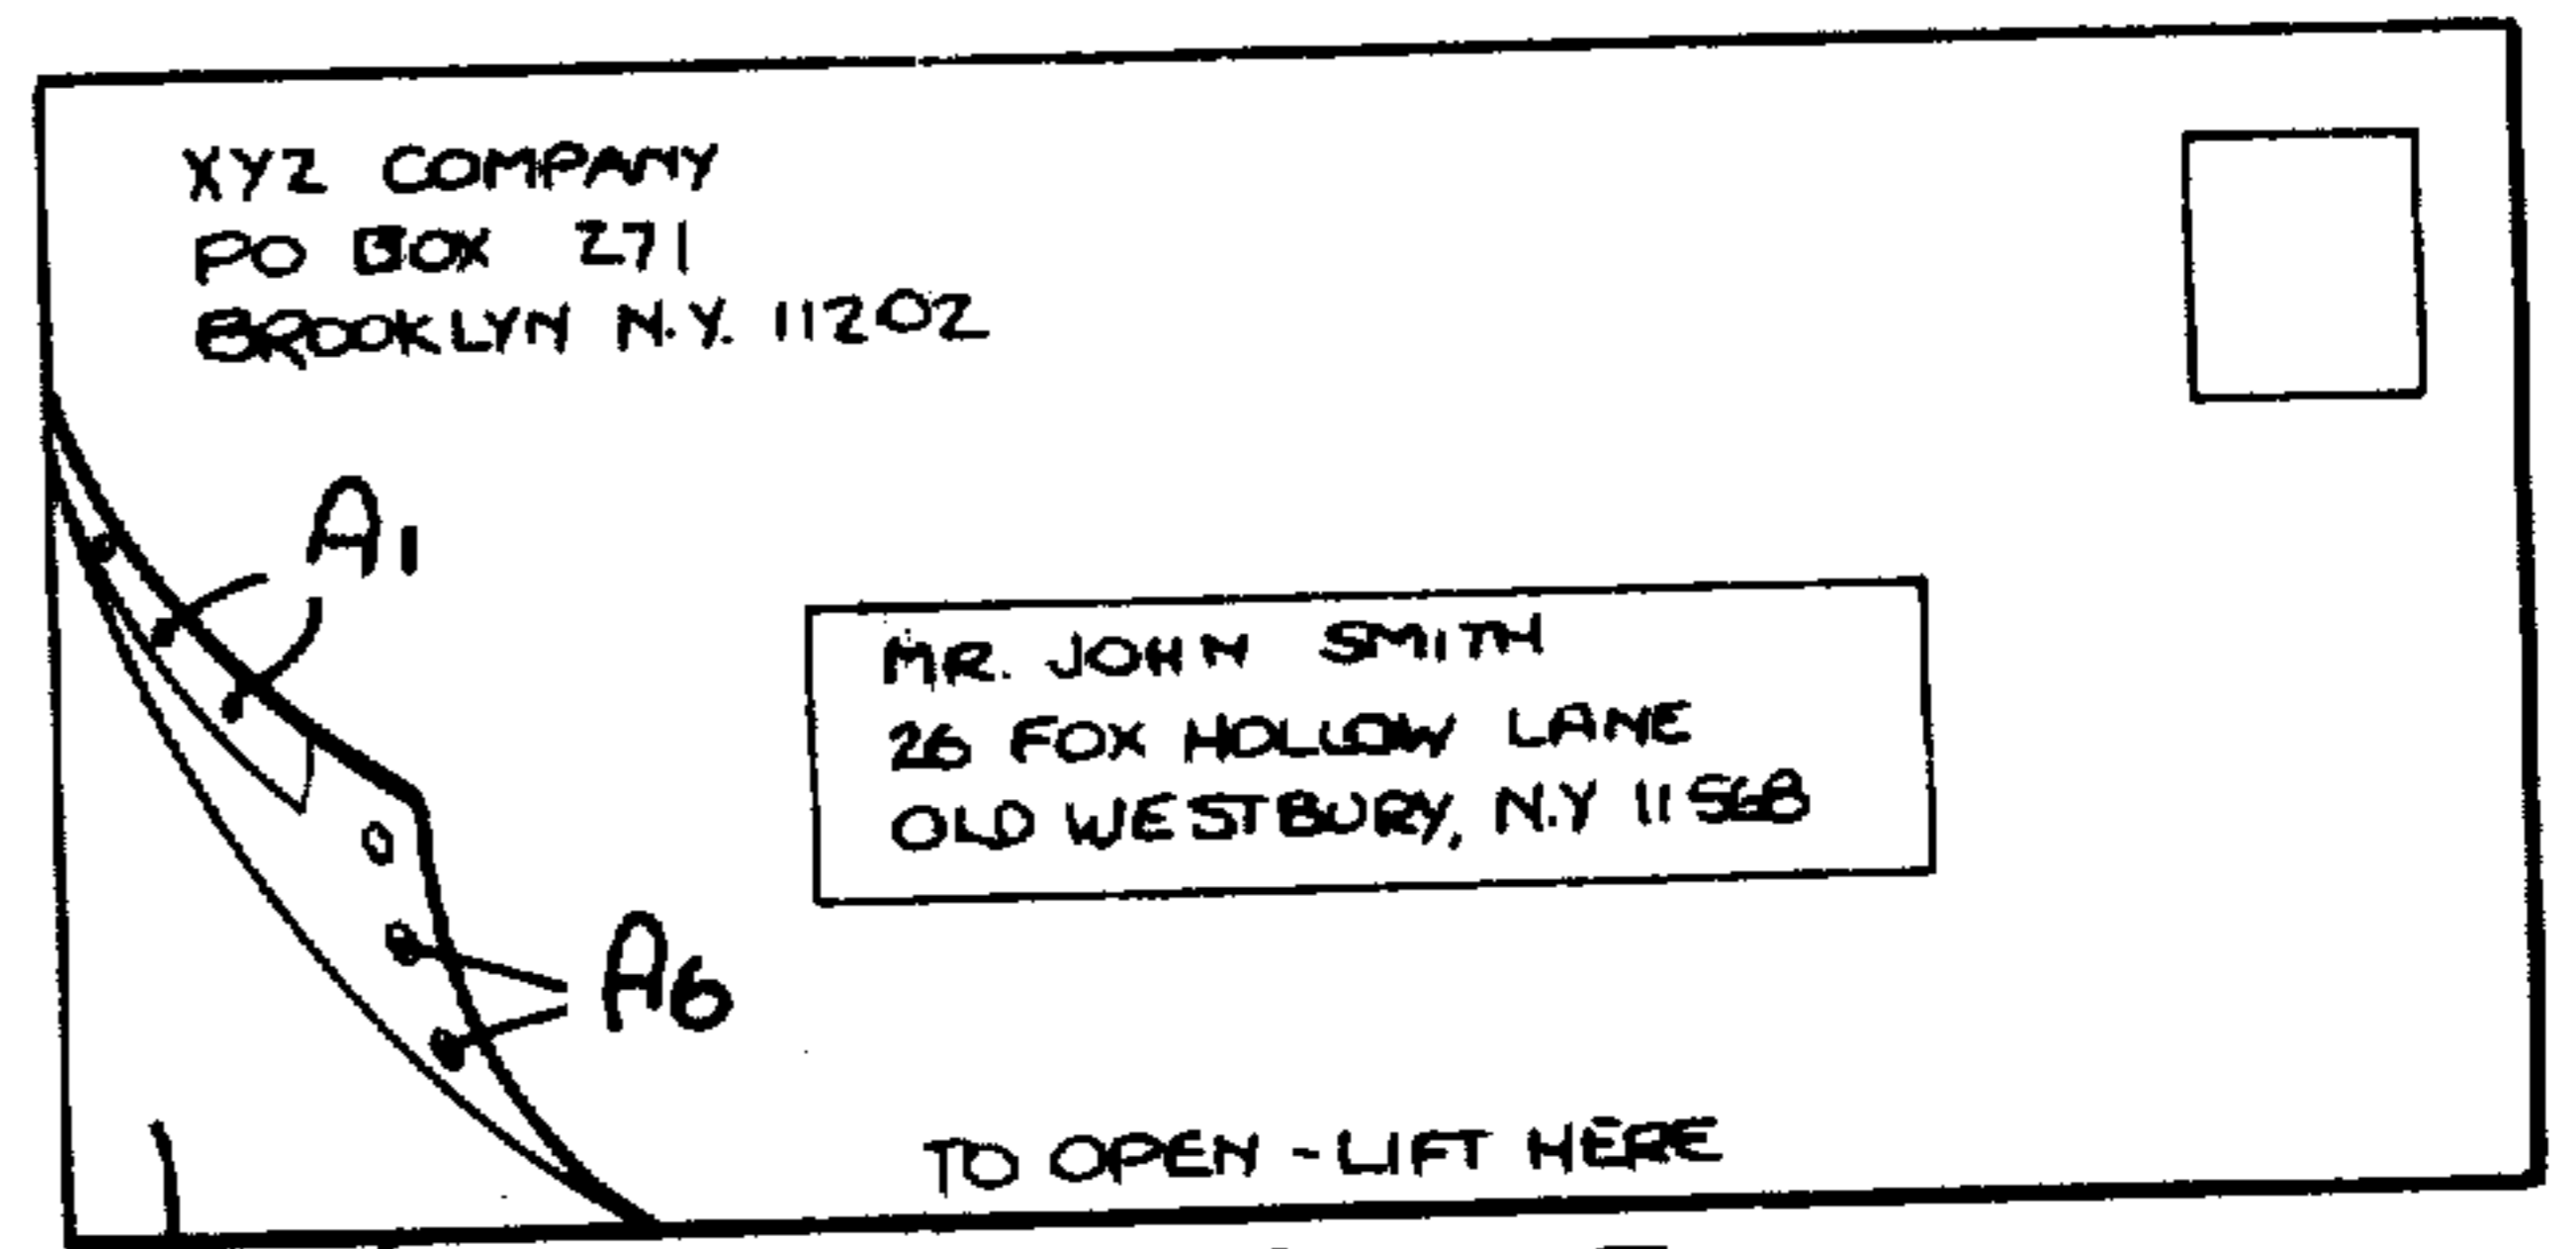 XYZ COMPANY
PO BOX 271
BROOKLYN N.Y. 11202
A1
MR. JOHN SMITH
26 FOX HOLLOW LANE
OLD WESTBURY, N.Y 11568
A6
TO OPEN - LIFT HERE